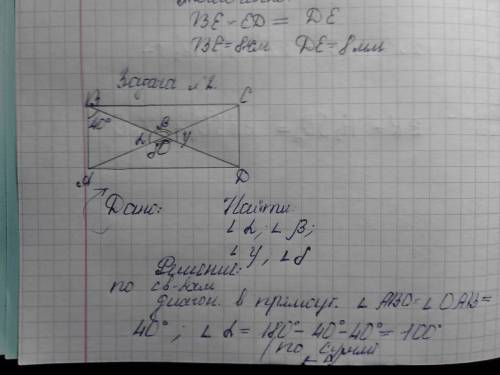 BE - ED = DE
BE = 8см DE = 8мм
Задача №2.
B C
40° β
α γ
δ O
A D
Дано: Найти
∠α; ∠β;
∠γ, ∠δ
Решение:
по св-вам
диагон. в прямоуг. ∠ABO = ∠OAB =
40°; ∠α = 180° - 40° - 40° = 100°
/по сумме